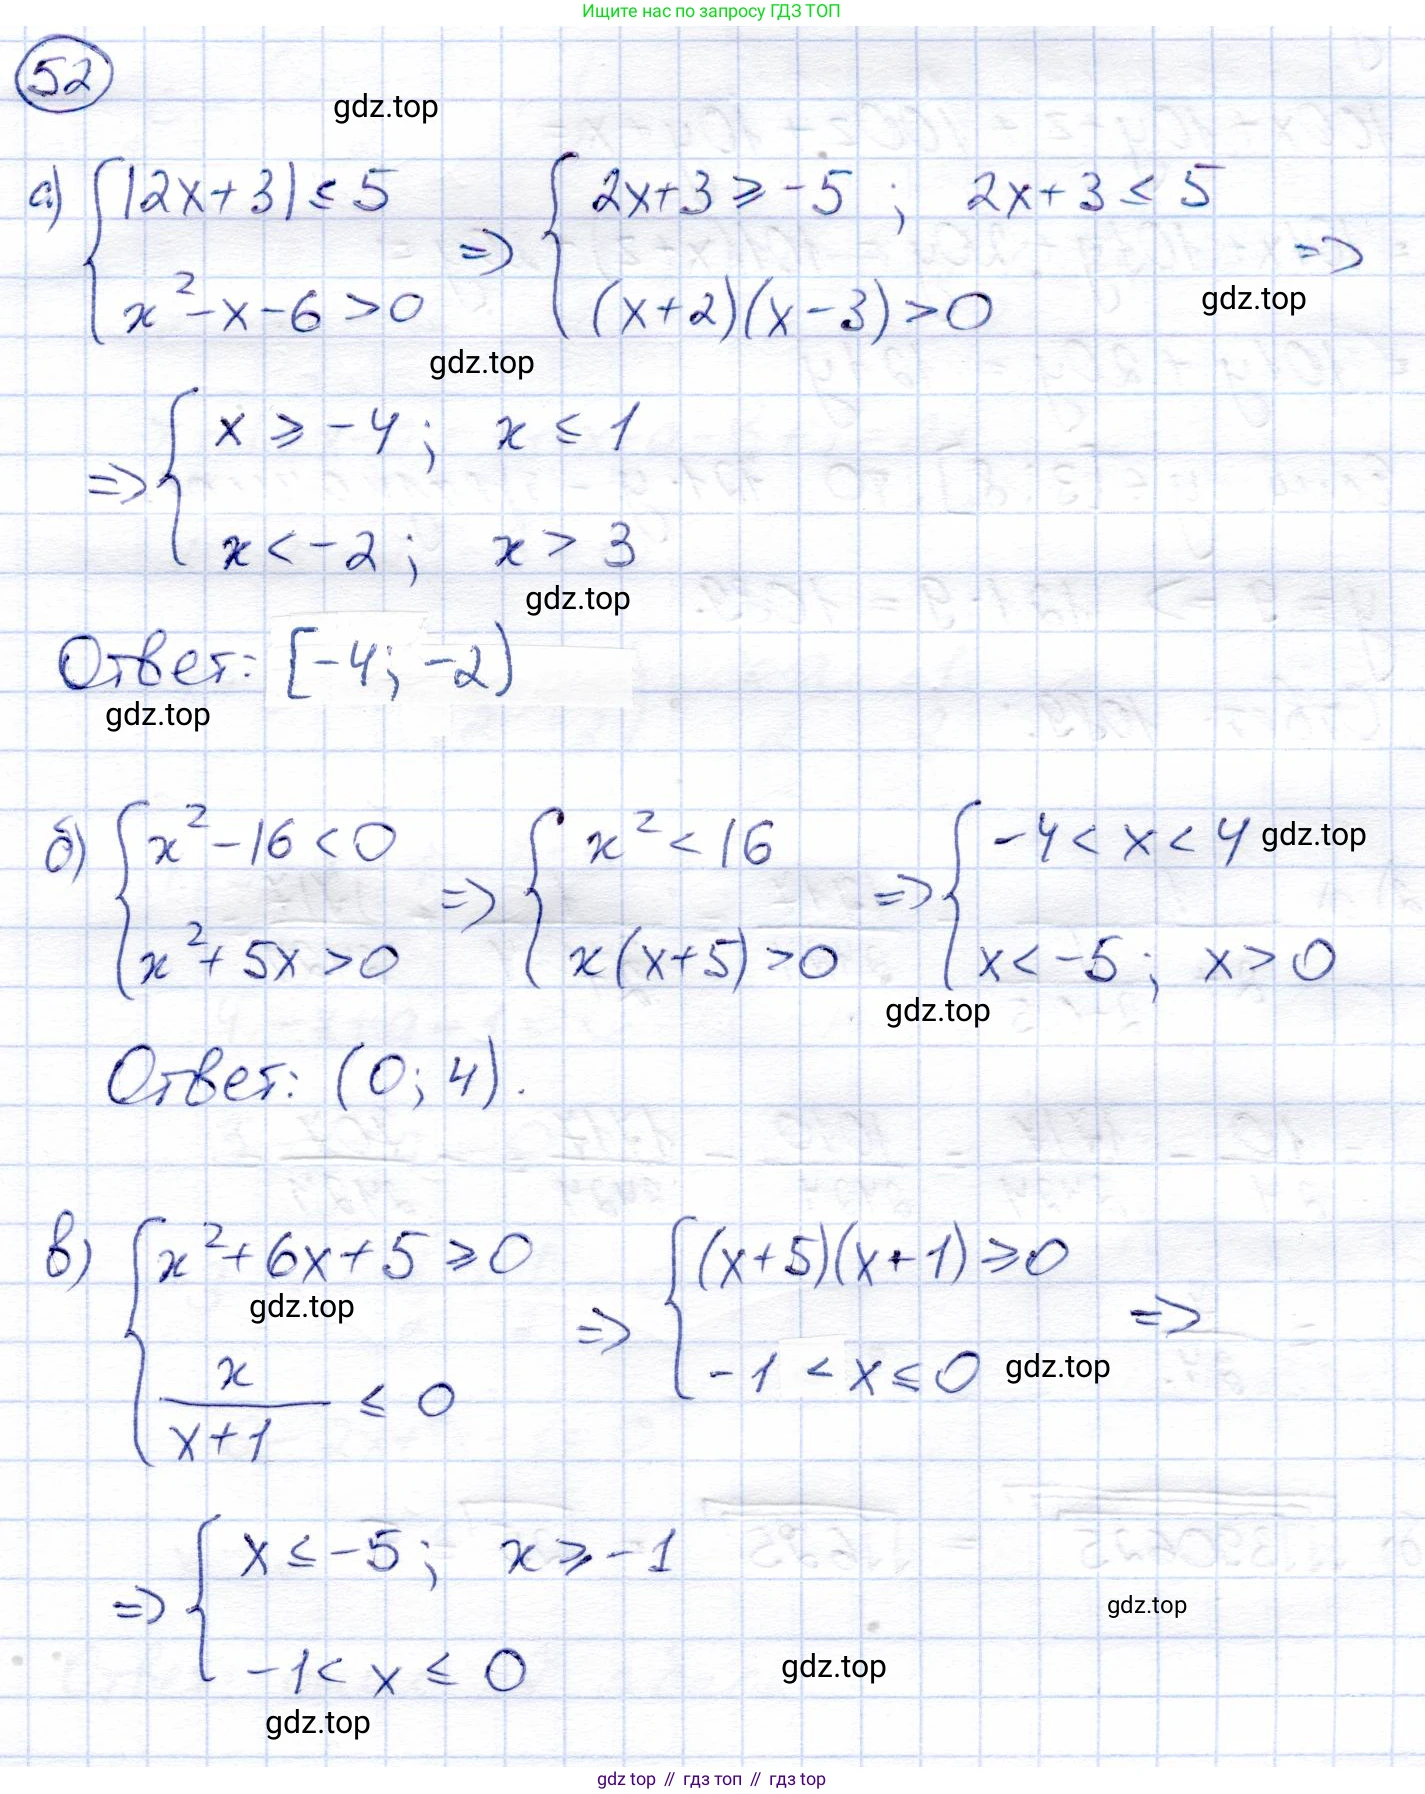 Ищите нас по запросу ГДЗ ТОП
52
gdz.top
а) { |2x+3| ≤ 5 ; x² - x - 6 > 0 => { 2x+3 ≥ -5 ; 2x+3 ≤ 5 ; (x+2)(x-3) > 0 =>
gdz.top
gdz.top
=> { x ≥ -4 ; x ≤ 1
x < -2 ; x > 3
gdz.top
Ответ: [-4; -2)
gdz.top
б) { x² - 16 < 0 ; x² + 5x > 0 => { x² < 16 ; x(x+5) > 0 => { -4 < x < 4 ; x < -5 ; x > 0
gdz.top
gdz.top
Ответ: (0; 4).
в) { x² + 6x + 5 ≥ 0 ; x/(x+1) ≤ 0 => { (x+5)(x+1) ≥ 0 ; -1 < x ≤ 0 =>
gdz.top
gdz.top
=> { x ≤ -5 ; x ≥ -1
-1 < x ≤ 0
gdz.top
gdz.top
gdz.top
gdz top // гдз топ // gdz top